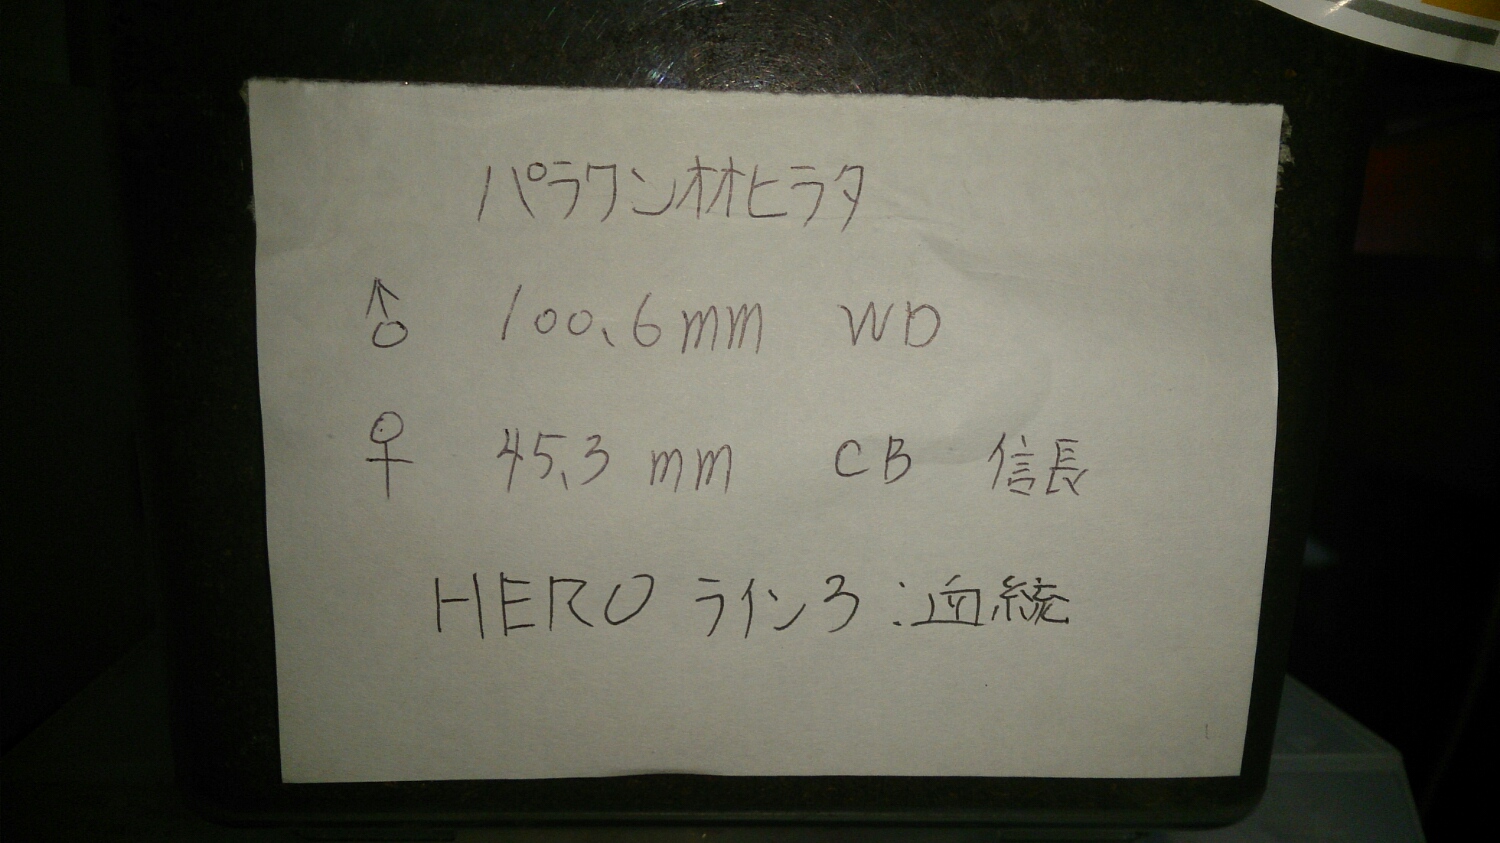 パラワンオオヒラタ
♂ 100.6mm WD
♀ 45.3mm CB 信長
HERO ライン3:血統